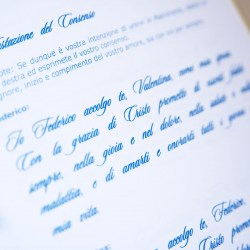 stazione del Consenso
te: Se dunque è vostra intenzione di unirvi in Matrimonio,
destra ed esprimete il vostro consenso:
gnore, inizio e compimento del vostro amore, sia con voi
derico:
Io Federico accolgo te, Valentina, come mia sposa.
Con la grazia di Cristo prometto di esserti fedele
sempre, nella gioia e nel dolore, nella salute e nella
malattia, e di amarti e onorarti tutti i giorni
mia vita.
accolgo te, Federico,
Cristo